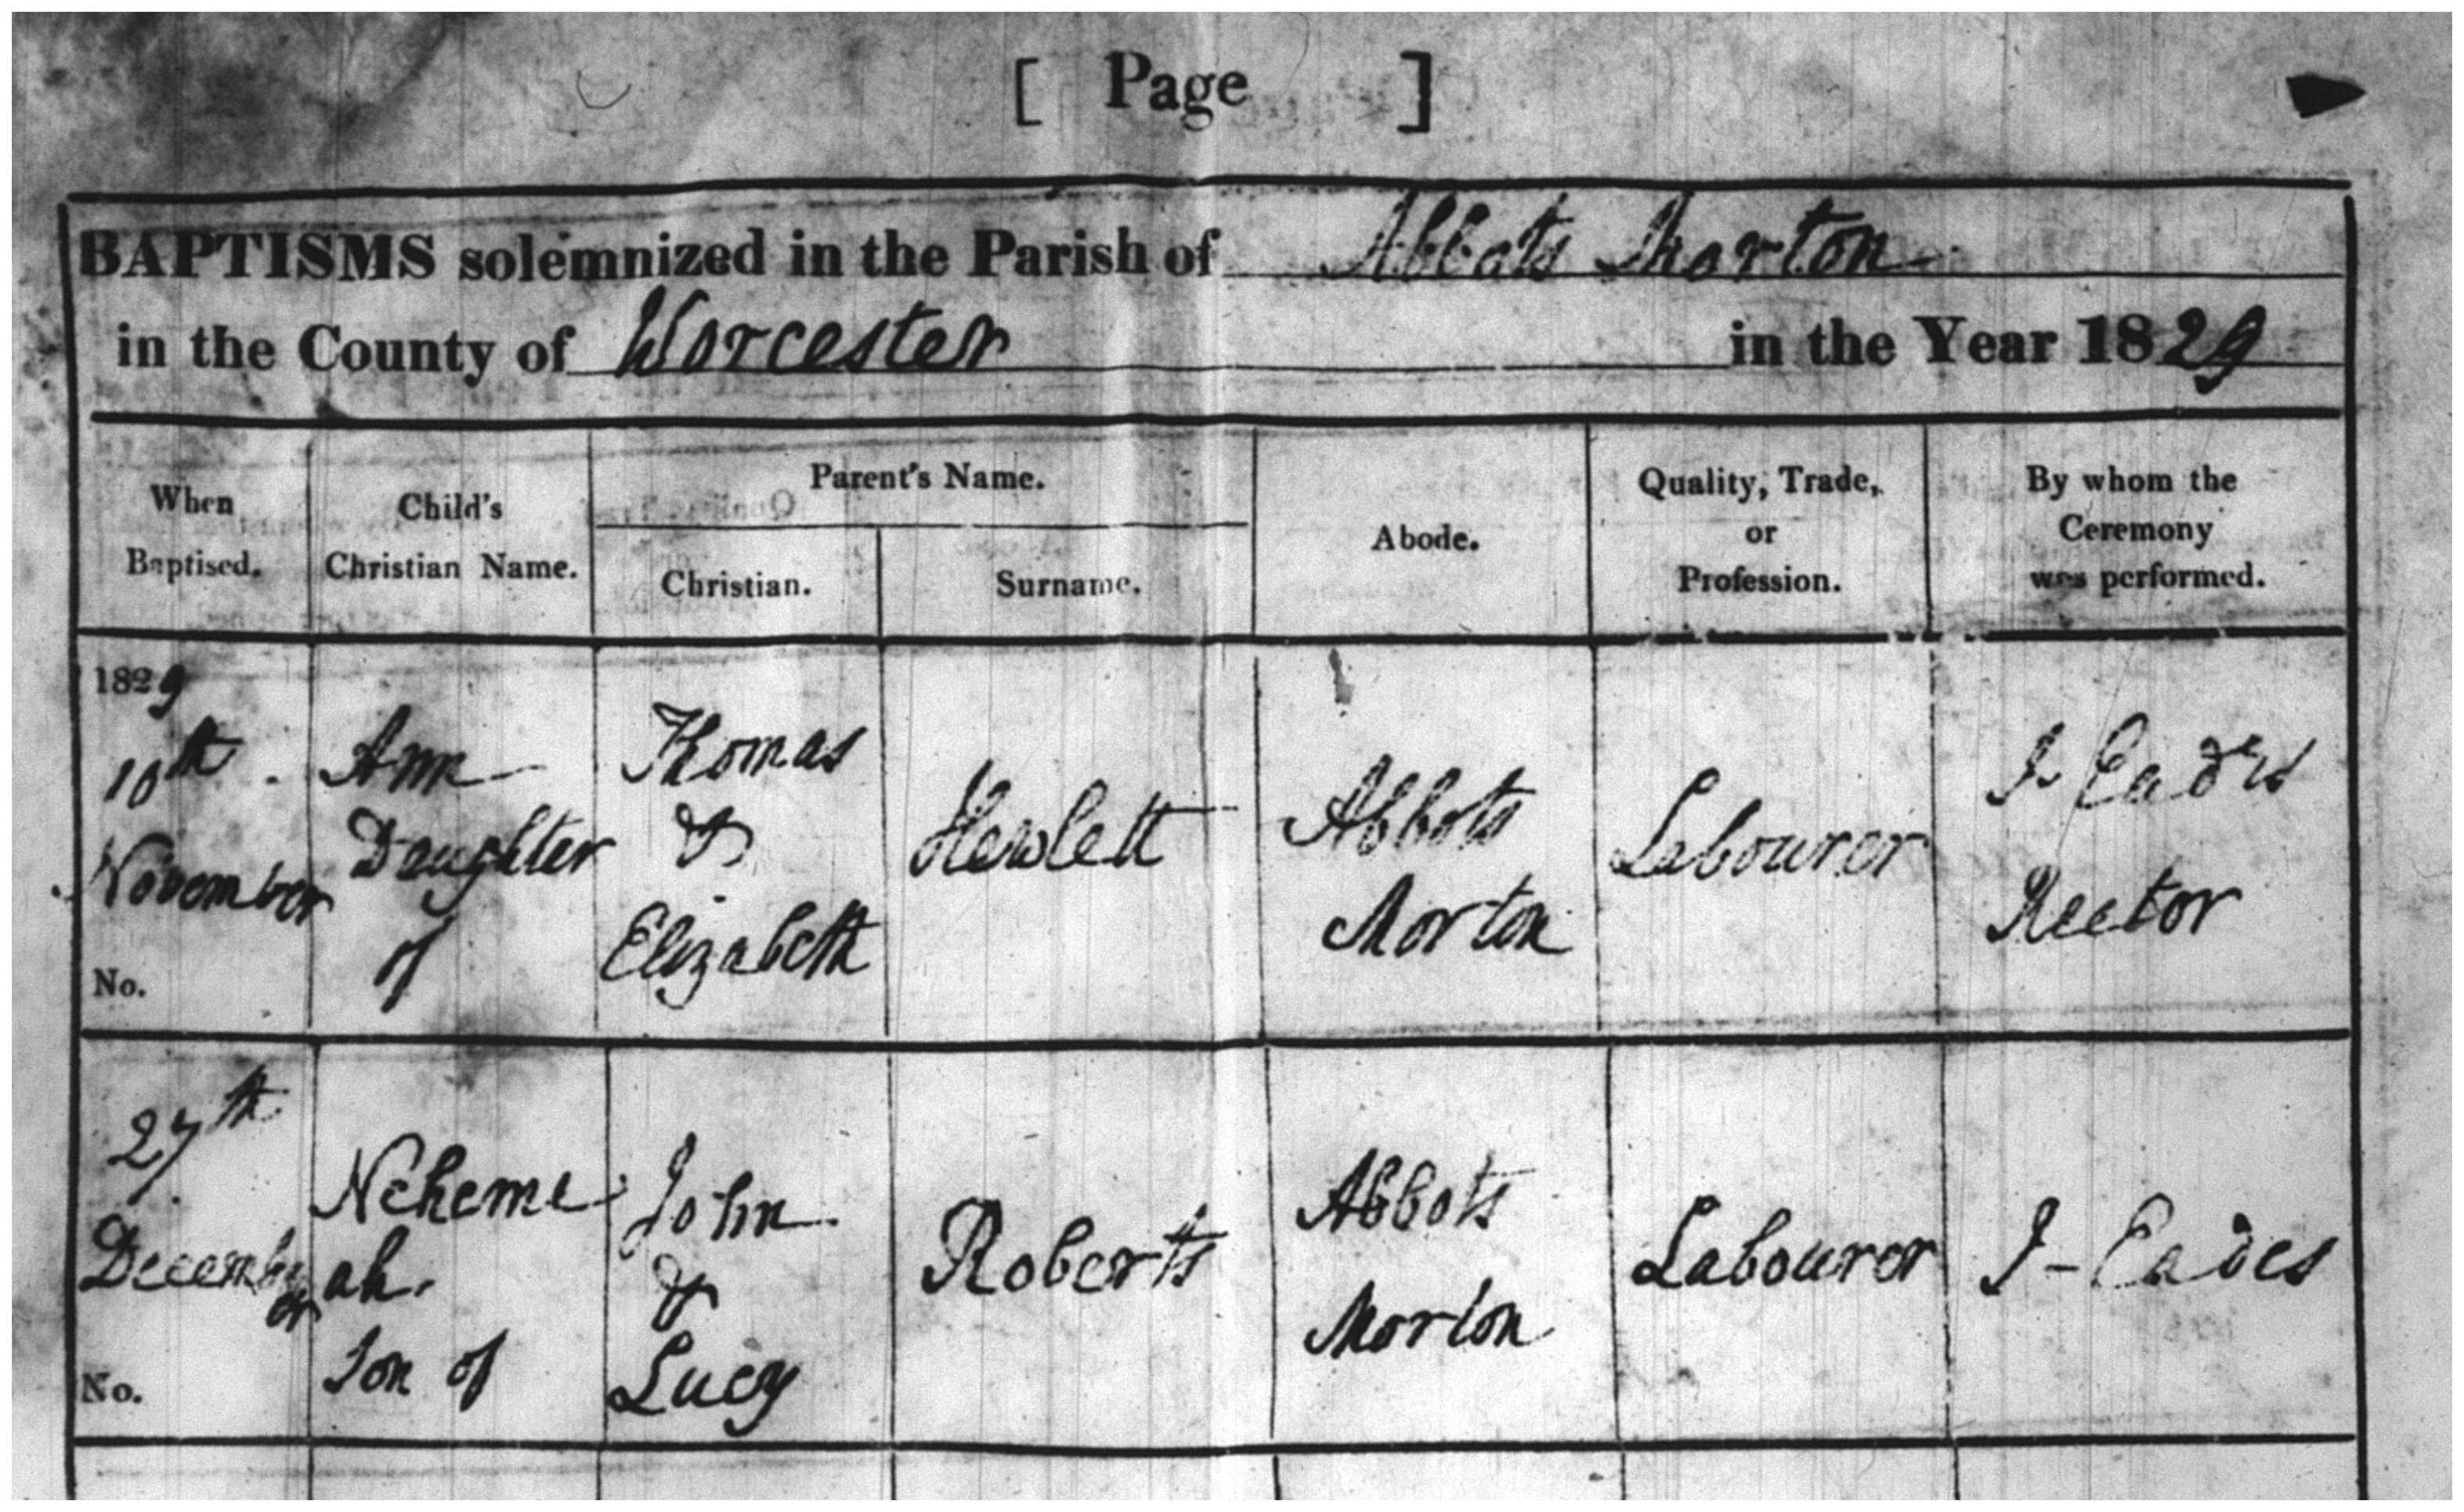 [ Page ]
BAPTISMS solemnized in the Parish of Abbots Morton
in the County of Worcester in the Year 1829
When
Baptised.
Child's
Christian Name.
Parent's Name.
Christian.
Surname.
Abode.
Quality, Trade,
or
Profession.
By whom the
Ceremony
was performed.
1829
10th
November
No.
Ann
Daughter
of
Thomas
&
Elizabeth
Hewlett
Abbots
Morton
Labourer
J Eades
Rector
27th
Decemb
er
No.
Nehemi
ah.
Son of
John
&
Lucy
Roberts
Abbots
Morton
Labourer
J - Eades